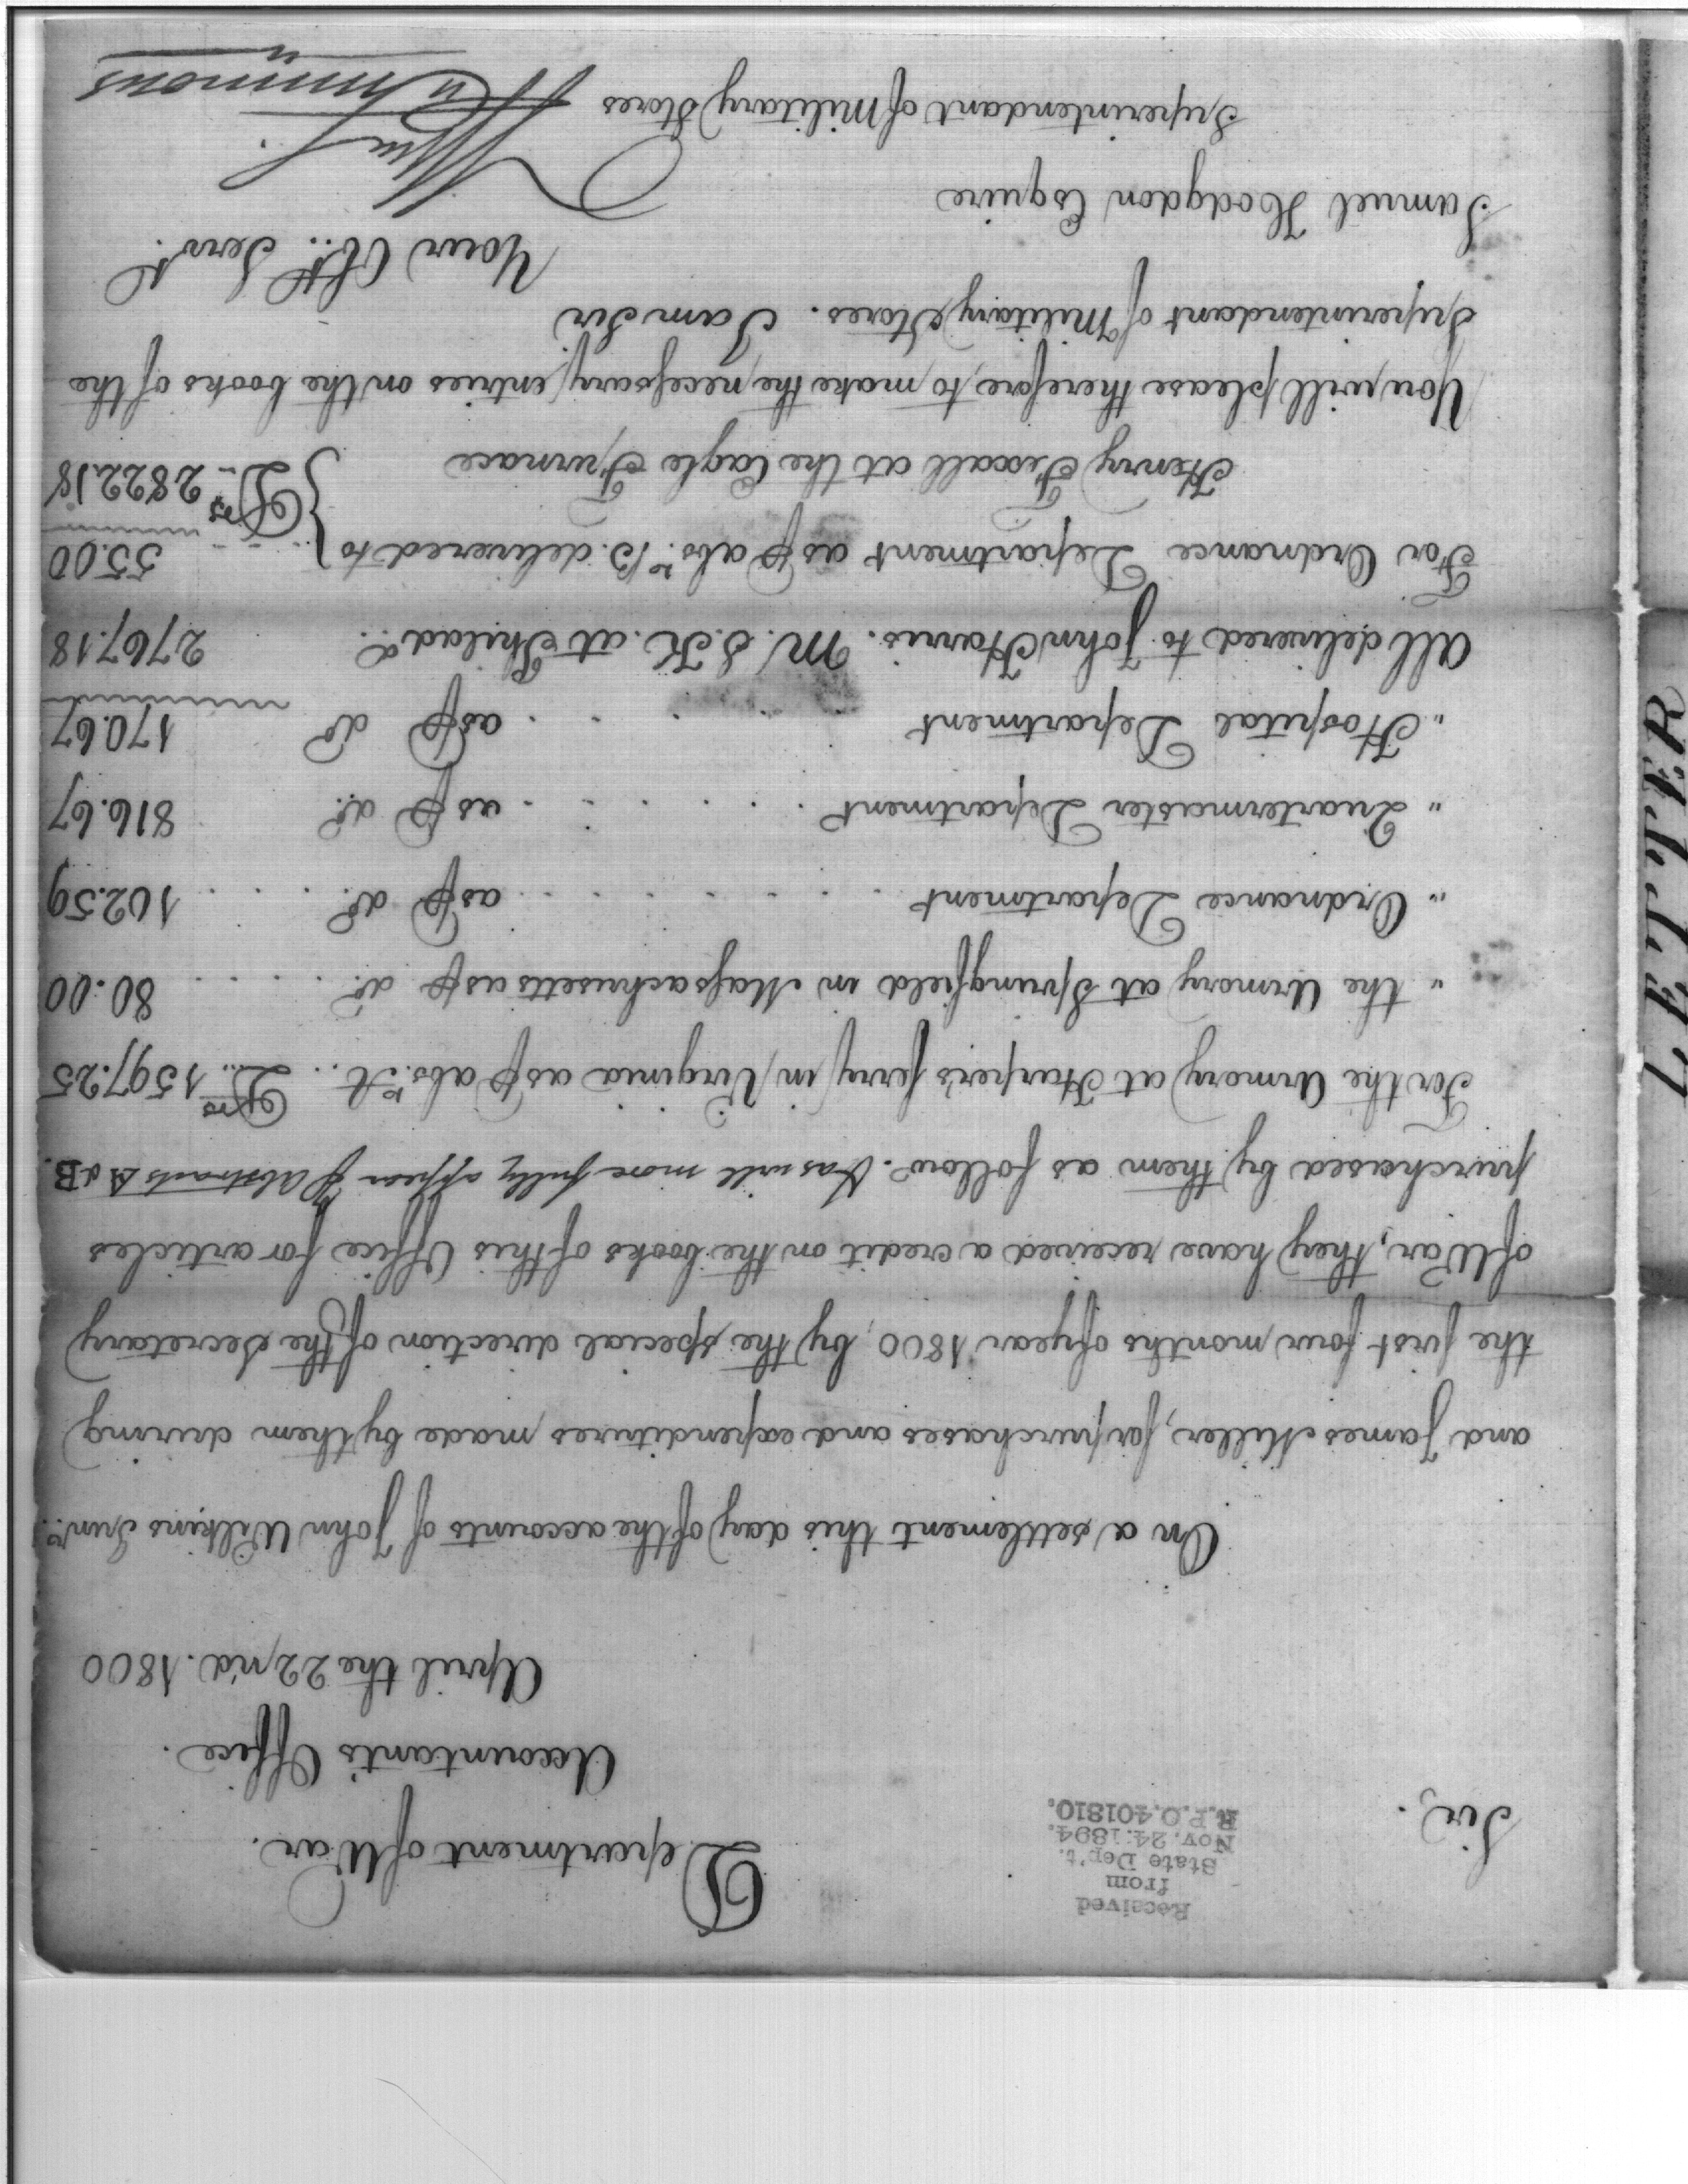 Received
from
State Dep't.
Nov. 24: 1894.
R.P.O. 401810.
Department of War.
Sir,
Accountant's Office.
April the 22,nd. 1800
On a settlement this day of the accounts of John Wilkins Junr.
and James Miller, for purchases and expenditures made by them during
the first four months of year 1800, by the special direction of the Secretary
of War, they have received a credit on the books of this Office for articles
purchased by them as follow. Vas will more fully appear ⅌ Abstracts A & B.
For the Armory at Harper's ferry in Virginia as ⅌ absr. A .. Drs.. 1597.25
" the Armory at Springfield in Massachusetts as ⅌ do. 80.00
" Ordnance Department as ⅌ do. 102.59
" Quartermaster Department as ⅌ do. 816.67
" Hospital Department as ⅌ do 170.67
All delivered to John Harris. M. S. K. at Philada. 2767.18
For Ordnance Department as ⅌ absr. B. delivered to 55.00
Henry Texall at the Eagle Furnace Drs.. 2822.18
You will please therefore, to make the necessary entries on the books of the
Superintendant of Military Stores. I am Sir
Your Obt. Servt.
Samuel Hodgdon Esquire
Wm. Simmons
Superintendant of Military Stores
LETTER